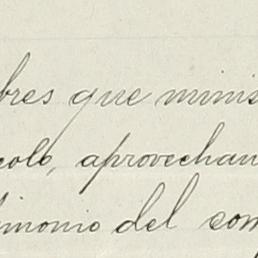 bres que minis
colo, aprovechan
imonio del com